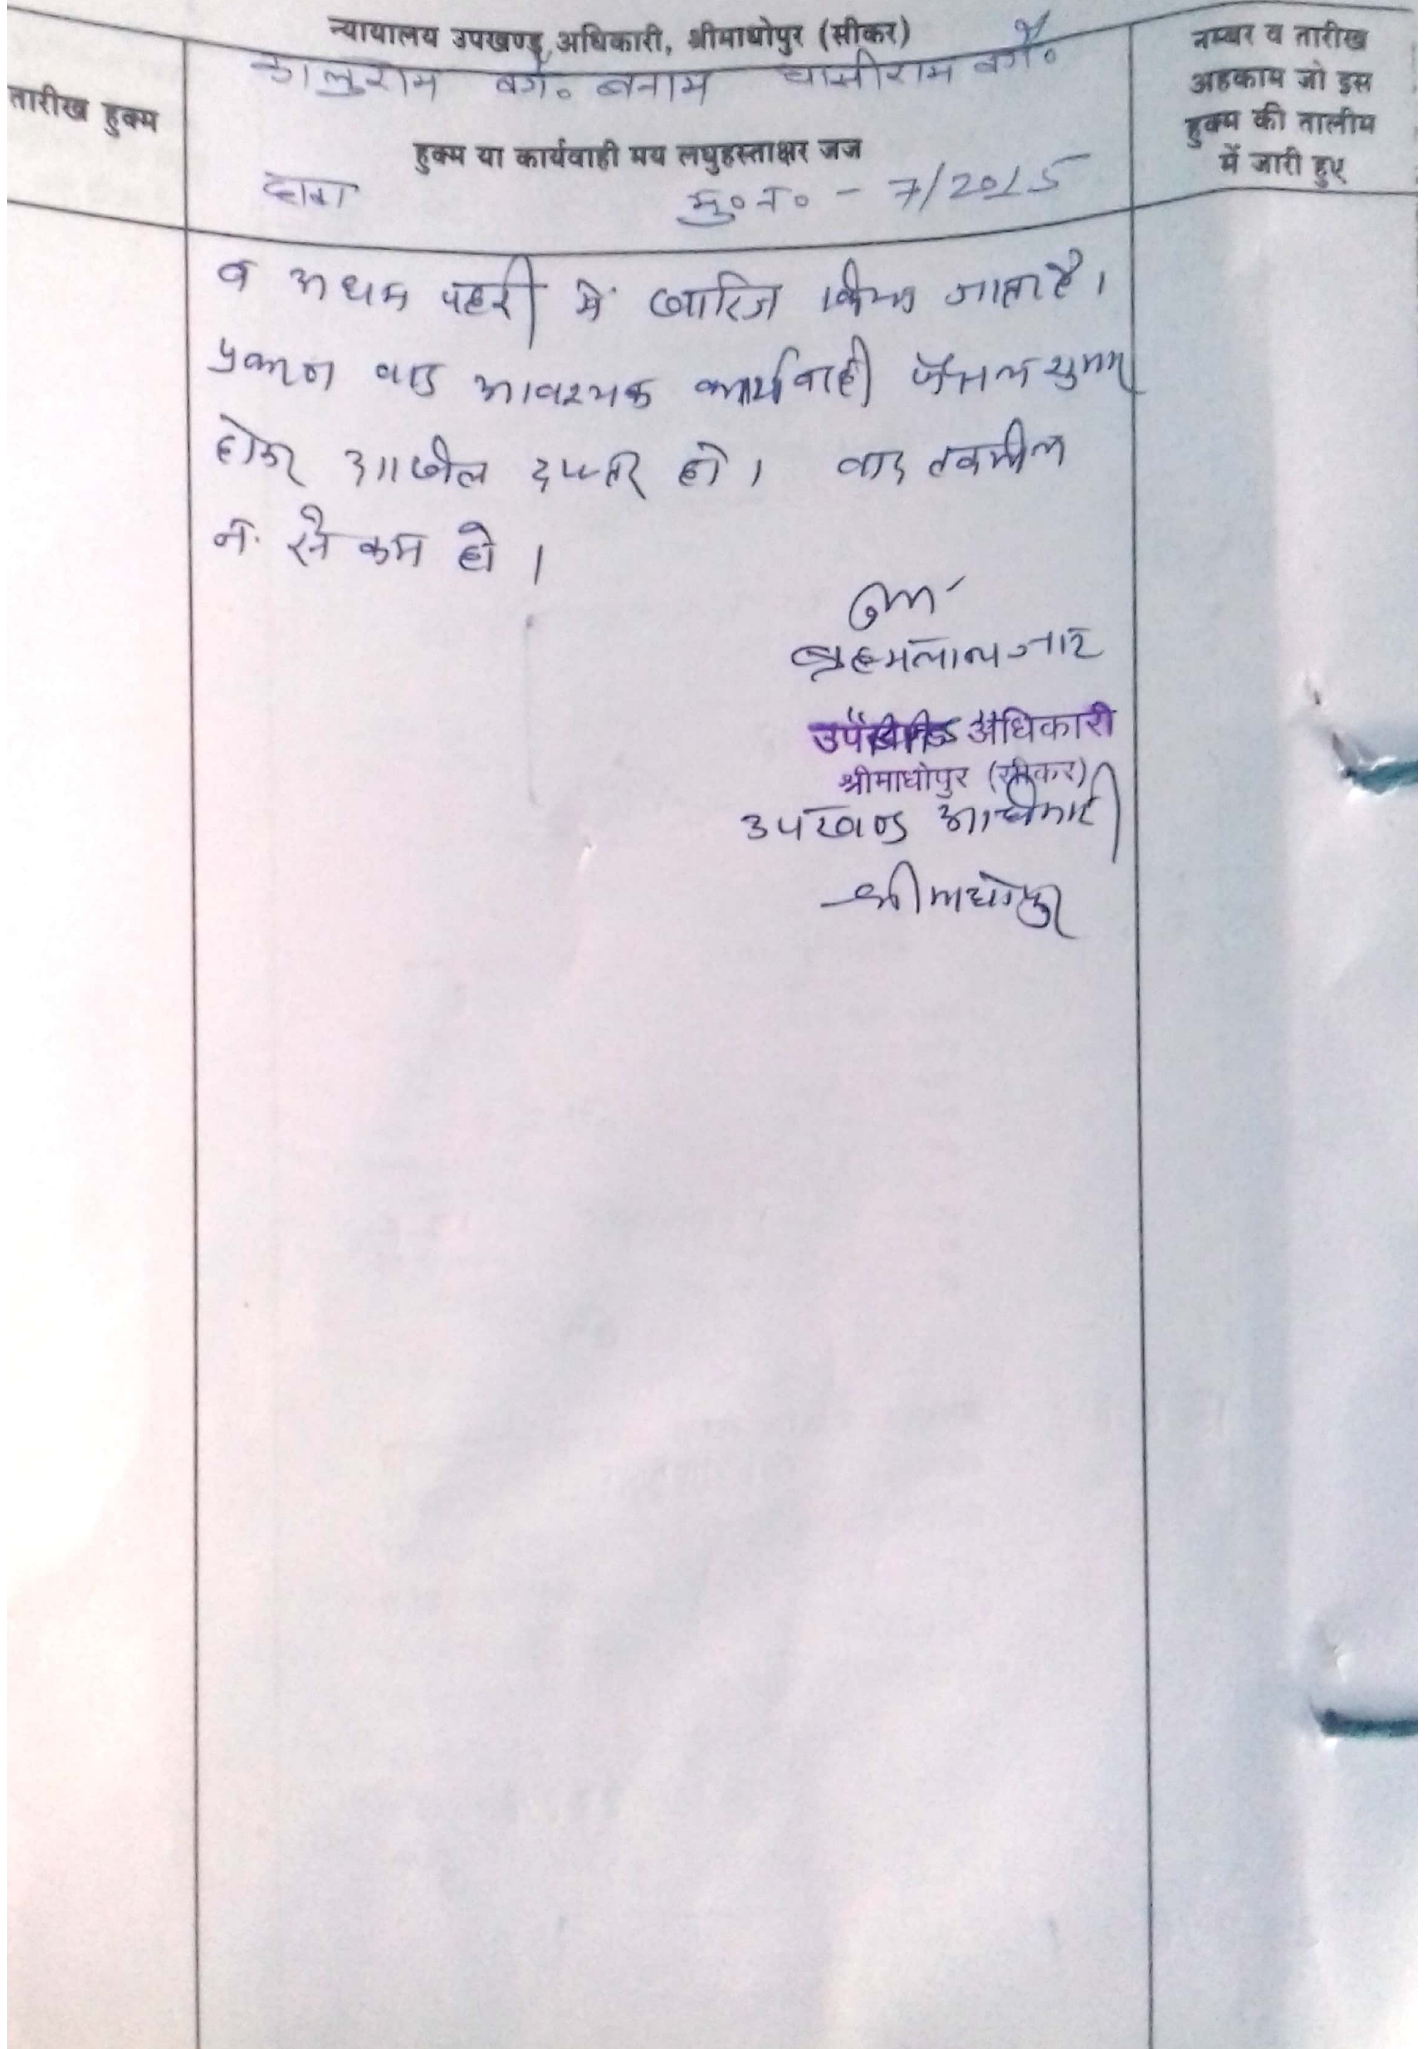 न्यायालय उपखण्ड अधिकारी, श्रीमाधोपुर (सीकर)
कालुराम वगै० बनाम घासीराम वगै०
तारीख हुक्म
हुक्म या कार्यवाही मय लघुहस्ताक्षर जज
नम्बर व तारीख
अहकाम जो इस
हुक्म की तालीम
में जारी हुए
दावा मु०न० - 7/2015
व अदम पैरवी में खारिज किया जाता है।
प्रकरण बाद आवश्यक कार्यवाही फैसल शुमार
होकर दाखील दफ्तर हो। बाद तकमील
नं. से कम हो।
ब्रह्मलाल जाट
उपखण्ड अधिकारी
श्रीमाधोपुर (सीकर)
उपखण्ड अधिकारी
श्रीमाधोपुर